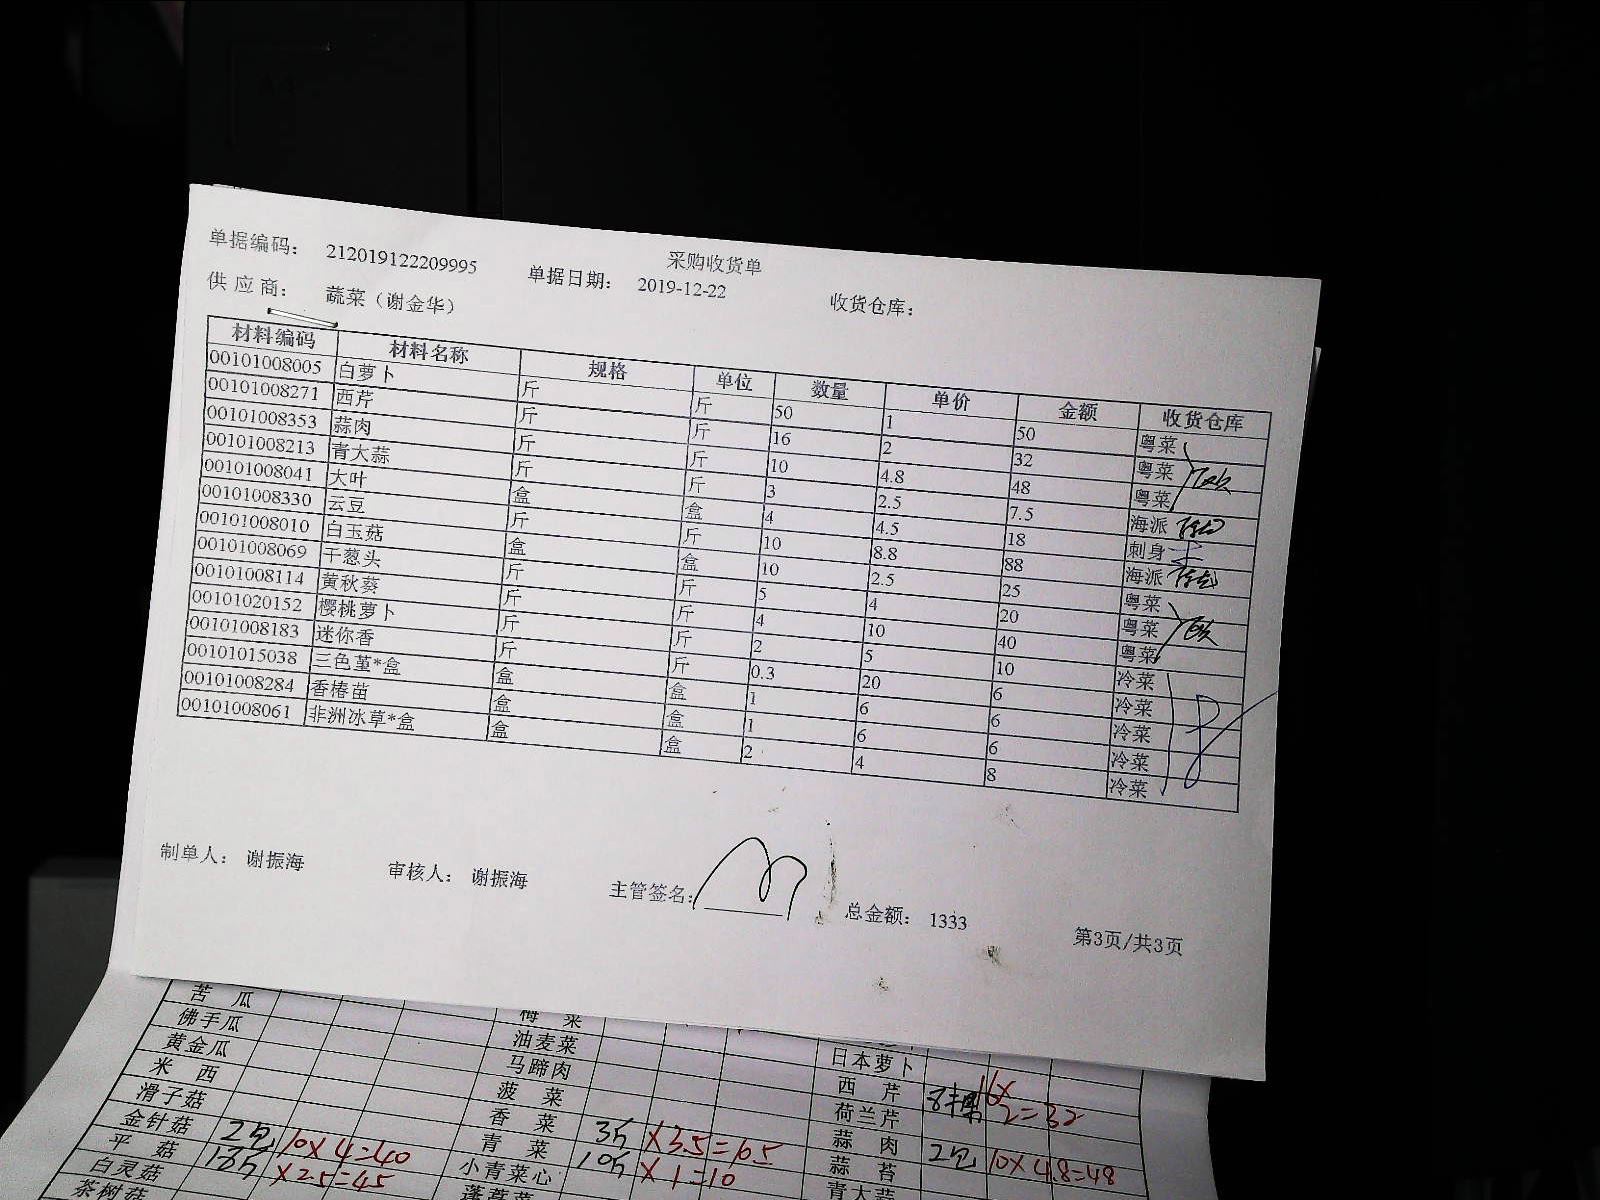 采购收货单
单据编码： 212019122209995 单据日期： 2019-12-22 收货仓库：
供应商： 蔬菜（谢金华）
材料编码 材料名称 规格 单位 数量 单价 金额 收货仓库
00101008005 白萝卜 斤 斤 50 1 50 粤菜
00101008271 西芹 斤 斤 16 2 32 粤菜
00101008353 蒜肉 斤 斤 10 4.8 48 粤菜
00101008213 青大蒜 斤 斤 3 2.5 7.5 海派
00101008041 大叶 盒 盒 4 4.5 18 刺身
00101008330 云豆 斤 斤 10 8.8 88 海派
00101008010 白玉菇 盒 盒 10 2.5 25 粤菜
00101008069 干葱头 斤 斤 5 4 20 粤菜
00101008114 黄秋葵 斤 斤 4 10 40 粤菜
00101020152 樱桃萝卜 斤 斤 2 5 10 冷菜
00101008183 迷你香 斤 斤 0.3 20 6 冷菜
00101015038 三色堇*盒 盒 盒 1 6 6 冷菜
00101008284 香椿苗 盒 盒 1 6 6 冷菜
00101008061 非洲冰草*盒 盒 盒 2 4 8 冷菜
制单人： 谢振海 审核人： 谢振海 主管签名： 总金额： 1333
第3页/共3页
苦瓜 梅菜
佛手瓜 油麦菜 日本萝卜
黄金瓜 马蹄肉 西芹 16×2=32
米西 菠菜 荷兰芹
滑子菇 香菜 蒜肉 2包 10×4.8=48
金针菇 2包 10×4=40 青菜 3斤 ×3.5=10.5 蒜苔
平菇 18斤 ×2.5=45 小青菜心 10斤 ×1=10 青大蒜
白灵菇
茶树菇